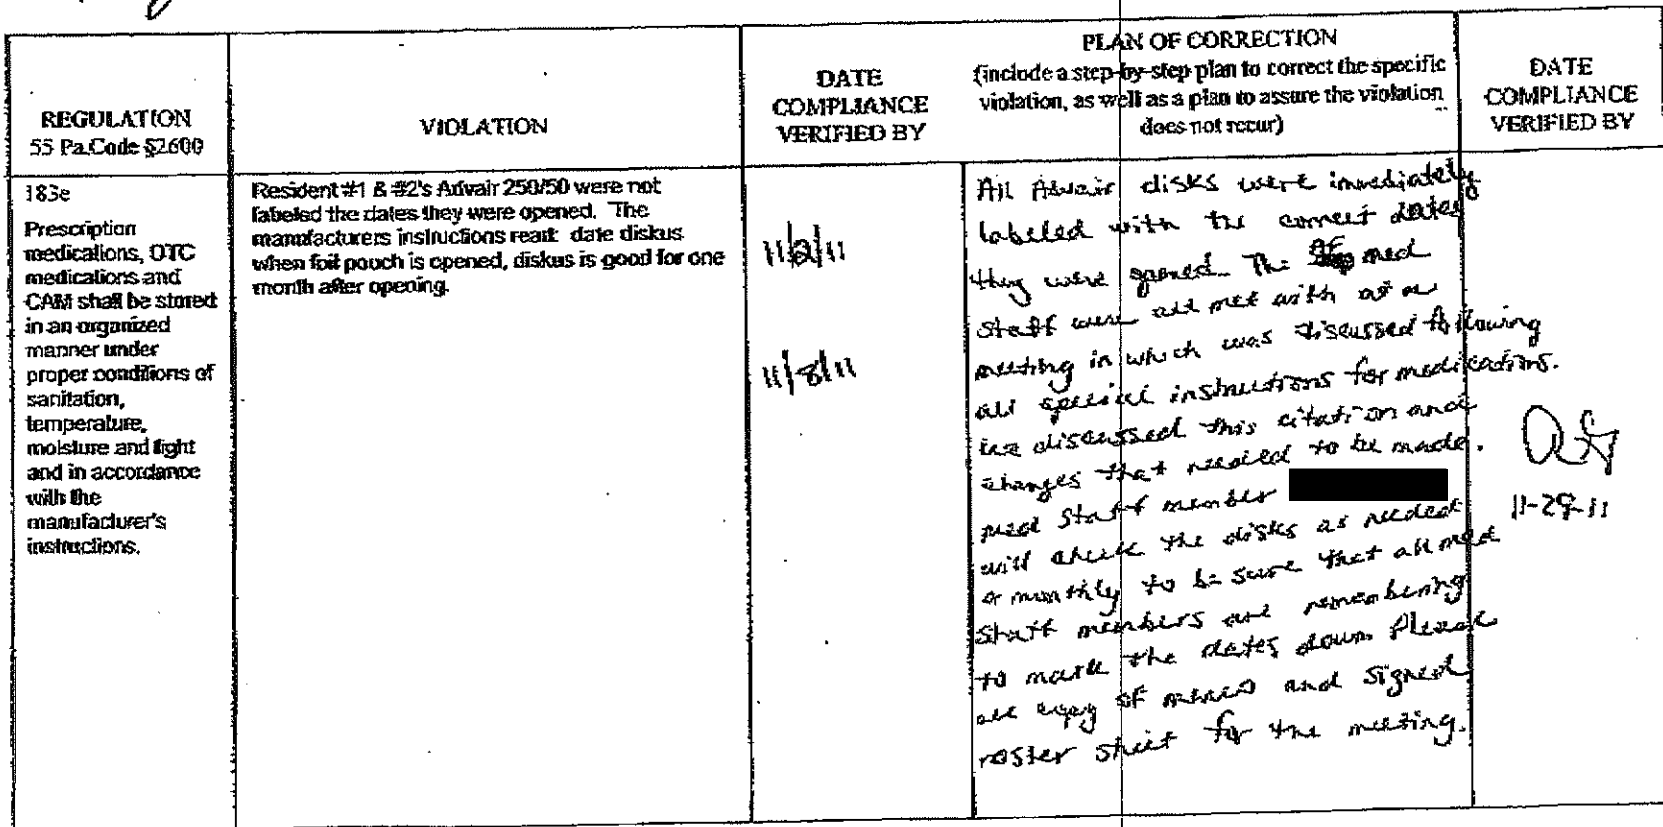 REGULATION
55 Pa.Code §2600
VIOLATION
DATE
COMPLIANCE
VERIFIED BY
PLAN OF CORRECTION
(include a step-by-step plan to correct the specific
violation, as well as a plan to assure the violation
does not recur)
DATE
COMPLIANCE
VERIFIED BY
183e
Prescription
medications, OTC
medications and
CAM shall be stored
in an organized
manner under
proper conditions of
sanitation,
temperature,
moisture and light
and in accordance
with the
manufacturer's
instructions.
Resident #1 & #2's Advair 250/50 were not
labeled the dates they were opened. The
manufacturers instructions read: date diskus
when foil pouch is opened, diskus is good for one
month after opening.
11/2/11
11/8/11
All Advair disks were immediately
labeled with the correct dates
they were opened. The med
staff were all met with at a
meeting in which was discussed following
all special instructions for medications.
we discussed this citation and
changes that needed to be made.
med staff member
will check the disks as needed
& monthly to be sure that all med
staff members are remembering
to mark the dates down. Please
see copy of and signed
roster sheet for the meeting.
11-29-11